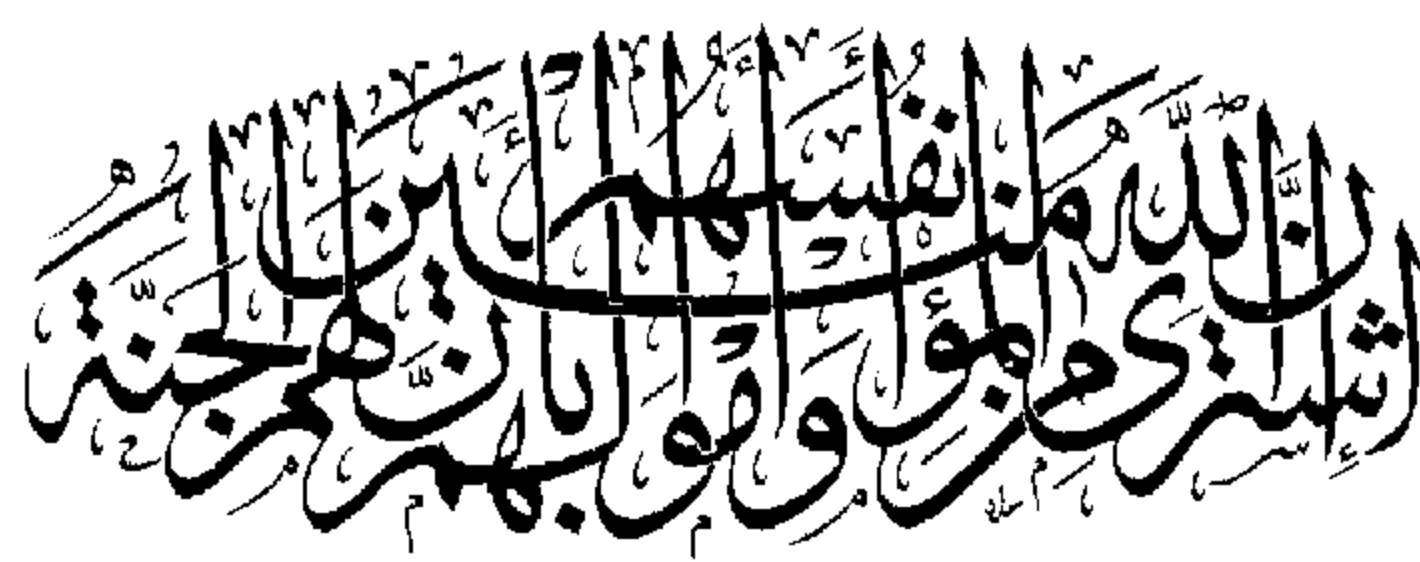 إِنَّ اللَّهَ اشْتَرَىٰ مِنَ الْمُؤْمِنِينَ أَنْفُسَهُمْ وَأَمْوَالَهُمْ بِأَنَّ لَهُمُ الْجَنَّةَ